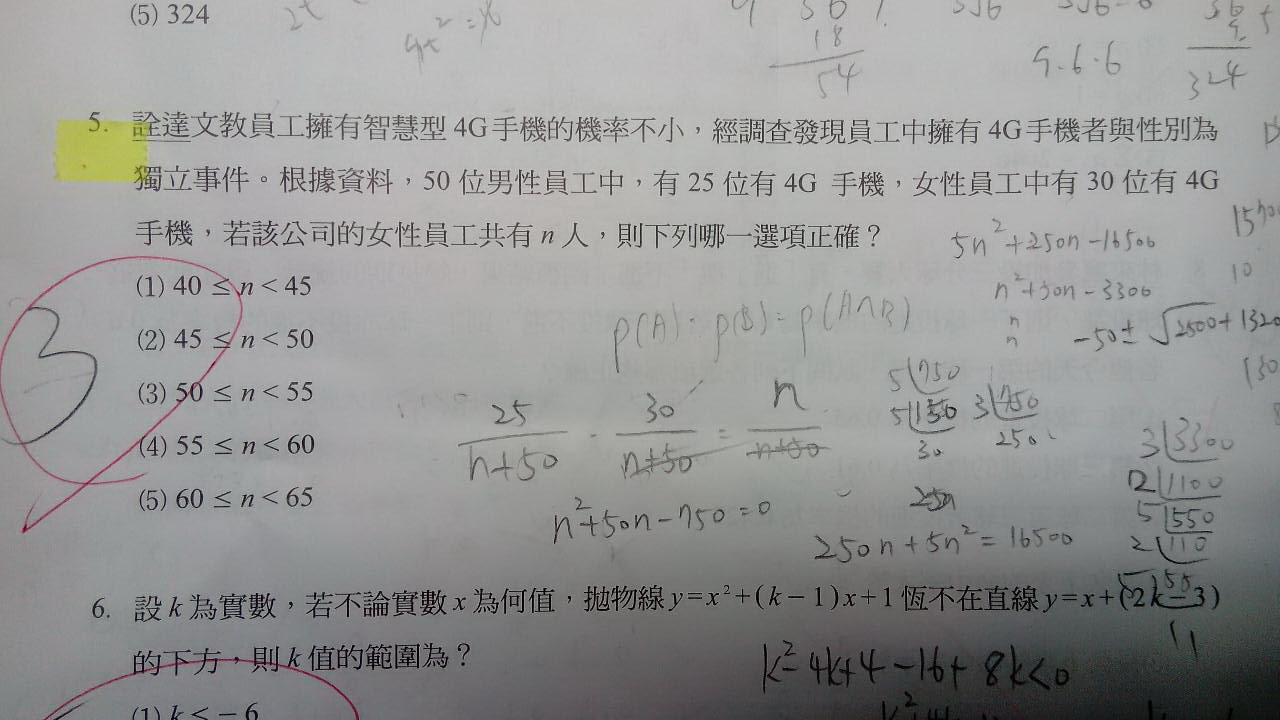 (5) 324
2t
4t² =
18
54
9.6.6
324
5. 詮達文教員工擁有智慧型 4G 手機的機率不小，經調查發現員工中擁有 4G 手機者與性別為
獨立事件。根據資料，50 位男性員工中，有 25 位有 4G 手機，女性員工中有 30 位有 4G
手機，若該公司的女性員工共有 n 人，則下列哪一選項正確？
5n²+250n-16500
10
(1) 40 ≤ n < 45
n²+50n-3300
n
n
P(A)·P(B)=P(A∩B)
-50±√2500+1320
(2) 45 ≤ n < 50
3
(3) 50 ≤ n < 55
25/n+50 · 30/n+50 = n/n+50
5 750
5 150
30
3 750
250
(4) 55 ≤ n < 60
3 3300
2 1100
5 550
2 110
55
11
(5) 60 ≤ n < 65
n²+50n-750=0
250n+5n²=16500
6. 設 k 為實數，若不論實數 x 為何值，拋物線 y=x²+(k-1)x+1 恆不在直線 y=x+(2k-3)
的下方，則 k 值的範圍為？
k²-4k+4-16+8k<0
(1) k ≤ -6